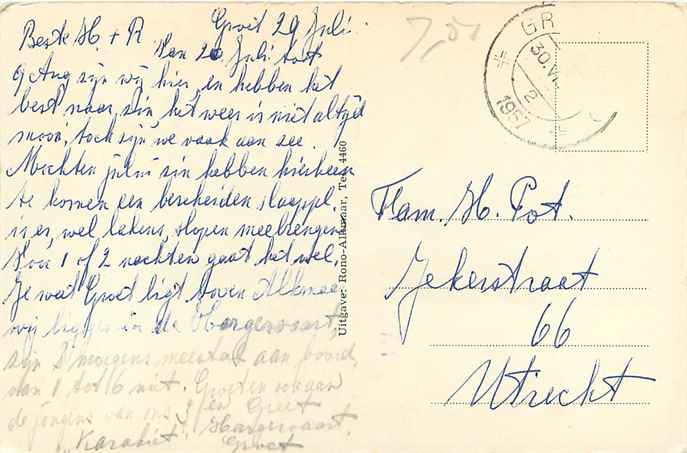 Groet 29 Juli.
Beste H + R
Van 20 Juli tot
9 Aug zijn wij hier, en hebben het
best naar zin het weer is niet altijd
mooi, toch zijn we vaak aan zee.
Mochten jullie zin hebben hierheen
te komen een bescheiden slaappl.
is er, wel lakens, slopen meebrengen
Voor 1 of 2 nachten gaat het wel.
Je weet Groet ligt boven Alkmaar
wij liggen in de Hargervaart,
zijn 's morgens meestal aan boord,
van 1 tot 6 niet. Groeten ook aan
de jongens van ons 3 en Greet
"Karakiet" Hargervaart
Groet
7,50
GR
30.VII
1957
Uitgave: Rono-Alkmaar, Tel. 4460
Fam. H. Pot.
Jekerstraat
66
Utrecht